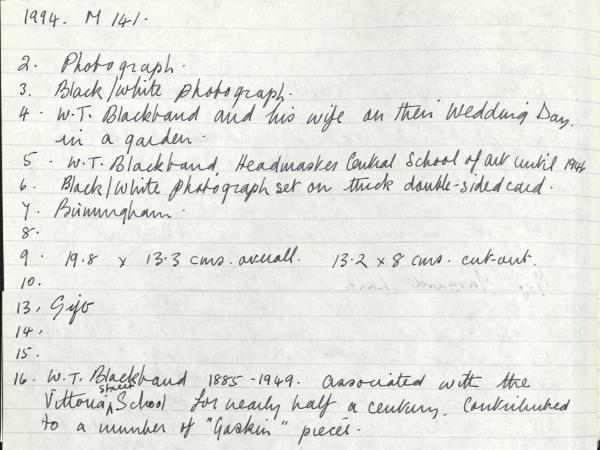 1994. M 141.
2. Photograph.
3. Black/white photograph.
4. W.T. Blackband and his wife on their Wedding Day.
in a garden.
5. W.T. Blackband, Headmaster Central School of art until 1946
6. Black/White photograph set on thick double-sided card.
7. Birmingham.
8.
9. 19.8 x 13.3 cms. overall. 13.2 x 8 cms. cut-out.
10.
13. Gift
14.
15.
16. W.T. Blackband 1885-1949. associated with the
Vittoria Street School for nearly half a century. Contributed
to a number of "Gaskin" pieces.